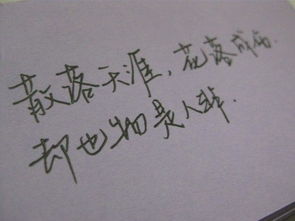 散落天涯，花落成
却也物是人非.